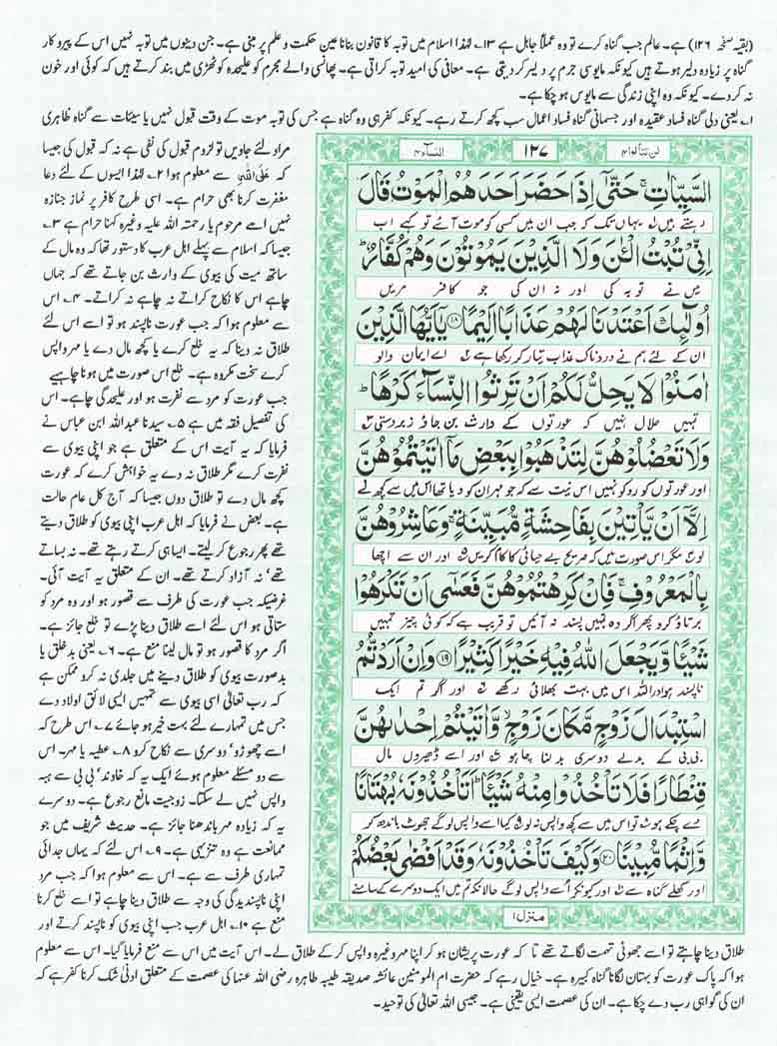 (بقیہ صفحہ ۱۲۶) ہے۔ عالم جب گناہ کرے تو وہ عملاً جاہل ہے ۱۳۔ لہٰذا اسلام میں توبہ کا قانون بنانا عین حکمت و علم پر مبنی ہے۔ جن دینوں میں توبہ نہیں اس کے پیروکار
گناہ پر زیادہ دلیر ہوتے ہیں کیونکہ مایوسی جرم پر دلیر کر دیتی ہے۔ معافی کی امید توبہ کراتی ہے۔ پھانسی والے مجرم کو علیحدہ کوٹھڑی میں بند کرتے ہیں کہ کوئی اور خون
نہ کر دے۔ کیونکہ وہ اپنی زندگی سے مایوس ہو چکا ہے۔
۱۔ یعنی دلی گناہ فساد عقیدہ اور جسمانی گناہ فساد اعمال سب کچھ کرتے رہے۔ کیونکہ کفر ہی وہ گناہ ہے جس کی توبہ موت کے وقت قبول نہیں یا سیئات سے گناہ ظاہری
مراد لئے جاویں تو لزوم قبول کی نفی ہے نہ کہ قبول کی جیسا
کہ عَلَی اللّٰہِ سے معلوم ہوا ۲۔ لہٰذا ایسوں کے لئے دعا
مغفرت کرنا بھی حرام ہے۔ اسی طرح کافر پر نماز جنازہ
نہیں اسے مرحوم یا رحمتہ اللہ علیہ وغیرہ کہنا حرام ہے ۳۔
جیسا کہ اسلام سے پہلے اہل عرب کا دستور تھا کہ وہ مال کے
ساتھ میت کی بیوی کے وارث بن جاتے تھے کہ جہاں
چاہے اس کا نکاح کراتے نہ چاہے نہ کراتے۔ ۴۔ اس
سے معلوم ہوا کہ جب عورت ناپسند ہو تو اسے اس لئے
طلاق نہ دینا کہ یہ خلع کرے یا کچھ مال دے یا مہر واپس
کرے سخت مکروہ ہے۔ خلع اس صورت میں ہونا چاہیے
جب عورت کو مرد سے نفرت ہو اور علیحدگی چاہے۔ اس
کی تفصیل فقہ میں ہے ۵۔ سیدنا عبداللہ ابن عباس نے
فرمایا کہ یہ آیت اس کے متعلق ہے جو اپنی بیوی سے
نفرت کرے مگر طلاق نہ دے یہ خواہش کرے کہ عورت
کچھ مال دے تو طلاق دوں جیسا کہ آج کل عام حالت
ہے۔ بعض نے فرمایا کہ اہل عرب اپنی بیوی کو طلاق دیتے
تھے پھر رجوع کر لیتے۔ ایسا ہی کرتے رہتے تھے۔ نہ بساتے
تھے' نہ آزاد کرتے تھے۔ ان کے متعلق یہ آیت آئی۔
غرضیکہ جب عورت کی طرف سے قصور ہو اور وہ مرد کو
ستاتی ہو اس لئے اسے طلاق دینا پڑے تو خلع جائز ہے۔
اگر مرد کا قصور ہو تو مال لینا منع ہے۔ ۶۔ یعنی بدخلق یا
بدصورت بیوی کو طلاق دینے میں جلدی نہ کرو ممکن ہے
کہ رب تعالیٰ اسی بیوی سے تمہیں ایسی لائق اولاد دے
جس میں تمہارے لئے بہت خیر ہو جائے ۷۔ اس طرح کہ
اسے چھوڑو' دوسری سے نکاح کرو ۸۔ عطیہ یا مہر۔ اس
سے دو مسئلے معلوم ہوئے ایک یہ کہ خاوند' بی بی سے ہبہ
واپس نہیں لے سکتا۔ زوجیت مانع رجوع ہے۔ دوسرے
یہ کہ زیادہ مہر باندھنا جائز ہے۔ حدیث شریف میں جو
ممانعت ہے وہ تنزیہی ہے۔ ۹۔ اس لئے کہ یہاں جدائی
تمہاری طرف سے ہے۔ اس سے معلوم ہوا کہ جب مرد
اپنی ناپسندیدگی کی وجہ سے طلاق دینا چاہے تو اسے خلع کرنا
منع ہے ۱۰۔ اہل عرب جب اپنی بیوی کو ناپسند کرتے اور
لن تنالوا ۴
۱۲۷
النسآء ۴
السَّيِّاٰتِ ۚ حَتّٰۤى اِذَا حَضَرَ اَحَدَهُمُ الْمَوْتُ قَالَ
رہتے ہیں یہاں تک کہ جب ان میں کسی کو موت آئے تو کہے اب
اِنِّیْ تُبْتُ الْـٰٔنَ وَلَا الَّذِيْنَ يَمُوْتُوْنَ وَهُمْ كُفَّارٌ ؕ
میں نے توبہ کی اور نہ ان کی جو کافر مریں
اُولٰٓئِكَ اَعْتَدْنَا لَهُمْ عَذَابًا اَلِيْمًا ۝۱۸ يٰۤاَيُّهَا الَّذِيْنَ
ان کے لئے ہم نے دردناک عذاب تیار کر رکھا ہے اے ایمان والو
اٰمَنُوْا لَا يَحِلُّ لَكُمْ اَنْ تَرِثُوا النِّسَآءَ كَرْهًا ؕ
تمہیں حلال نہیں کہ عورتوں کے وارث بن جاؤ زبردستی ۳
وَلَا تَعْضُلُوْهُنَّ لِتَذْهَبُوْا بِبَعْضِ مَاۤ اٰتَيْتُمُوْهُنَّ
اور عورتوں کو روکو نہیں اس نیت سے کہ جو مہر ان کو دیا تھا اس میں سے کچھ لے
اِلَّاۤ اَنْ يَّاْتِيْنَ بِفَاحِشَةٍ مُّبَيِّنَةٍ ۚ وَعَاشِرُوْهُنَّ
لو مگر اس صورت میں کہ صریح بے حیائی کا کام کریں اور ان سے اچھا
بِالْمَعْرُوْفِ ۚ فَاِنْ كَرِهْتُمُوْهُنَّ فَعَسٰۤى اَنْ تَكْرَهُوْا
برتاؤ کرو پھر اگر وہ تمہیں پسند نہ آئیں تو قریب ہے کہ کوئی چیز تمہیں
شَيْـًٔا وَّيَجْعَلَ اللّٰهُ فِيْهِ خَيْرًا كَثِيْرًا ۝۱۹ وَاِنْ اَرَدْتُّمُ
ناپسند ہو اور اللہ اس میں بہت بھلائی رکھے اور اگر تم ایک
اسْتِبْدَالَ زَوْجٍ مَّكَانَ زَوْجٍ ۙ وَّاٰتَيْتُمْ اِحْدٰىهُنَّ
بی بی کے بدلے دوسری بدلنا چاہو اور اسے ڈھیروں مال
قِنْطَارًا فَلَا تَاْخُذُوْا مِنْهُ شَيْـًٔا ؕ اَتَاْخُذُوْنَهٗ بُهْتَانًا
دے چکے ہو تو اس میں سے کچھ واپس نہ لو کیا اسے واپس لو گے جھوٹ باندھ کر
وَّاِثْمًا مُّبِيْنًا ۝۲۰ وَكَيْفَ تَاْخُذُوْنَهٗ وَقَدْ اَفْضٰى بَعْضُكُمْ
اور کھلے گناہ سے اور کیونکر اسے واپس لو گے حالانکہ تم میں ایک دوسرے کے سامنے
منزل ۱
طلاق دینا چاہتے تو اسے جھوٹی تہمت لگاتے تھے تا کہ عورت پریشان ہو کر اپنا مہر وغیرہ واپس کر کے طلاق لے۔ اس آیت میں اس سے منع فرمایا گیا۔ اس سے معلوم
ہوا کہ پاک عورت کو بہتان لگانا گناہ کبیرہ ہے۔ خیال رہے کہ حضرت ام المومنین عائشہ صدیقہ طیبہ طاہرہ رضی اللہ عنہا کی عصمت کے متعلق ادنیٰ شک کرنا کفر ہے کہ
ان کی گواہی رب دے چکا ہے۔ ان کی عصمت ایسی یقینی ہے۔ جیسی اللہ تعالیٰ کی توحید۔